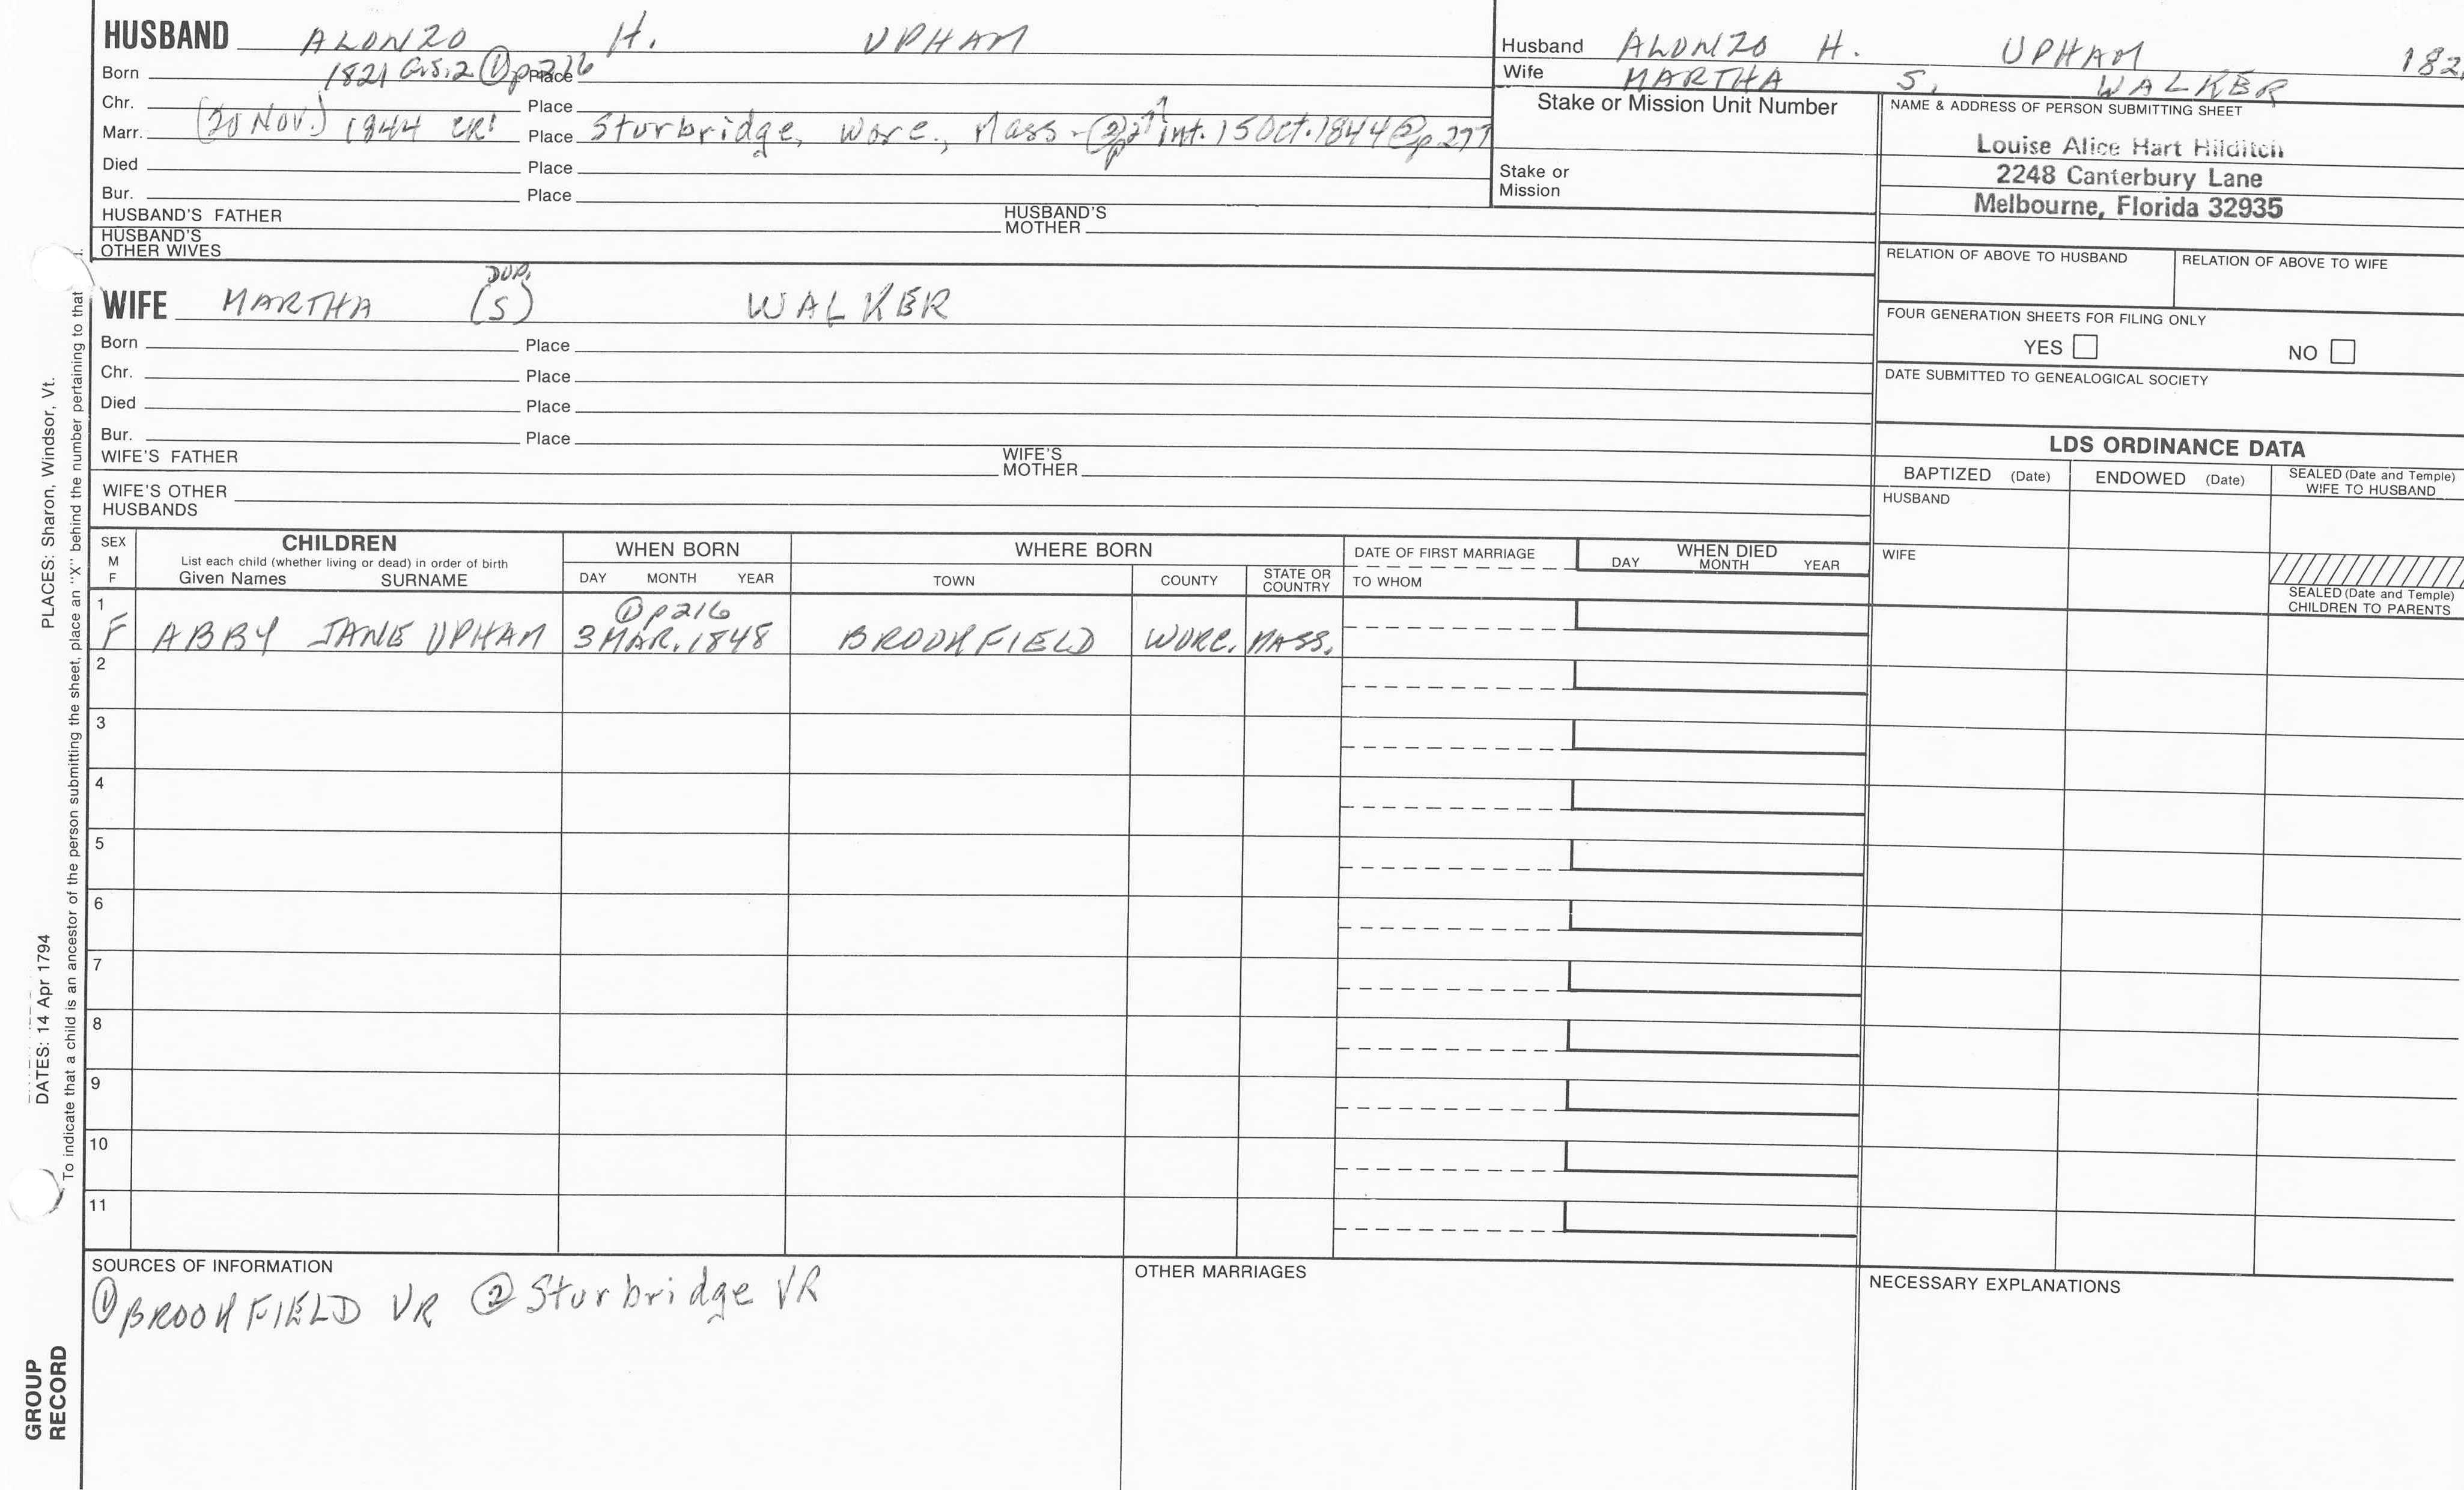 HUSBAND ALONZO H. UPHAM
Born 1821 G.S.2 ① p216 Place
Chr. Place
Marr. (20 Nov.) 1844 CR1 Place Sturbridge, Worc., Mass - int. 15 Oct. 1844 ② p 277
Died Place
Bur. Place
HUSBAND'S FATHER HUSBAND'S MOTHER
HUSBAND'S OTHER WIVES
Husband ALONZO H. UPHAM 182
Wife MARTHA S. WALKER
Stake or Mission Unit Number
Stake or Mission
NAME & ADDRESS OF PERSON SUBMITTING SHEET
Louise Alice Hart Hilditch
2248 Canterbury Lane
Melbourne, Florida 32935
RELATION OF ABOVE TO HUSBAND RELATION OF ABOVE TO WIFE
FOUR GENERATION SHEETS FOR FILING ONLY
YES NO
DATE SUBMITTED TO GENEALOGICAL SOCIETY
DUP.
WIFE MARTHA (S) WALKER
Born Place
Chr. Place
Died Place
Bur. Place
WIFE'S FATHER WIFE'S MOTHER
WIFE'S OTHER HUSBANDS
LDS ORDINANCE DATA
BAPTIZED (Date) ENDOWED (Date) SEALED (Date and Temple) WIFE TO HUSBAND
HUSBAND
WIFE
SEALED (Date and Temple) CHILDREN TO PARENTS
SEX M F
CHILDREN
List each child (whether living or dead) in order of birth
Given Names SURNAME
WHEN BORN
DAY MONTH YEAR
WHERE BORN
TOWN COUNTY STATE OR COUNTRY
DATE OF FIRST MARRIAGE
TO WHOM
WHEN DIED
DAY MONTH YEAR
① p216
1 F ABBY JANE UPHAM 3 MAR. 1848 BROOKFIELD WORC. MASS.
2
3
4
5
6
7
8
9
10
11
SOURCES OF INFORMATION
① BROOKFIELD VR ② Sturbridge VR
OTHER MARRIAGES
NECESSARY EXPLANATIONS
PLACES: Sharon, Windsor, Vt.
DATES: 14 Apr 1794
To indicate that a child is an ancestor of the person submitting the sheet, place an "X" behind the number pertaining to that
GROUP
RECORD